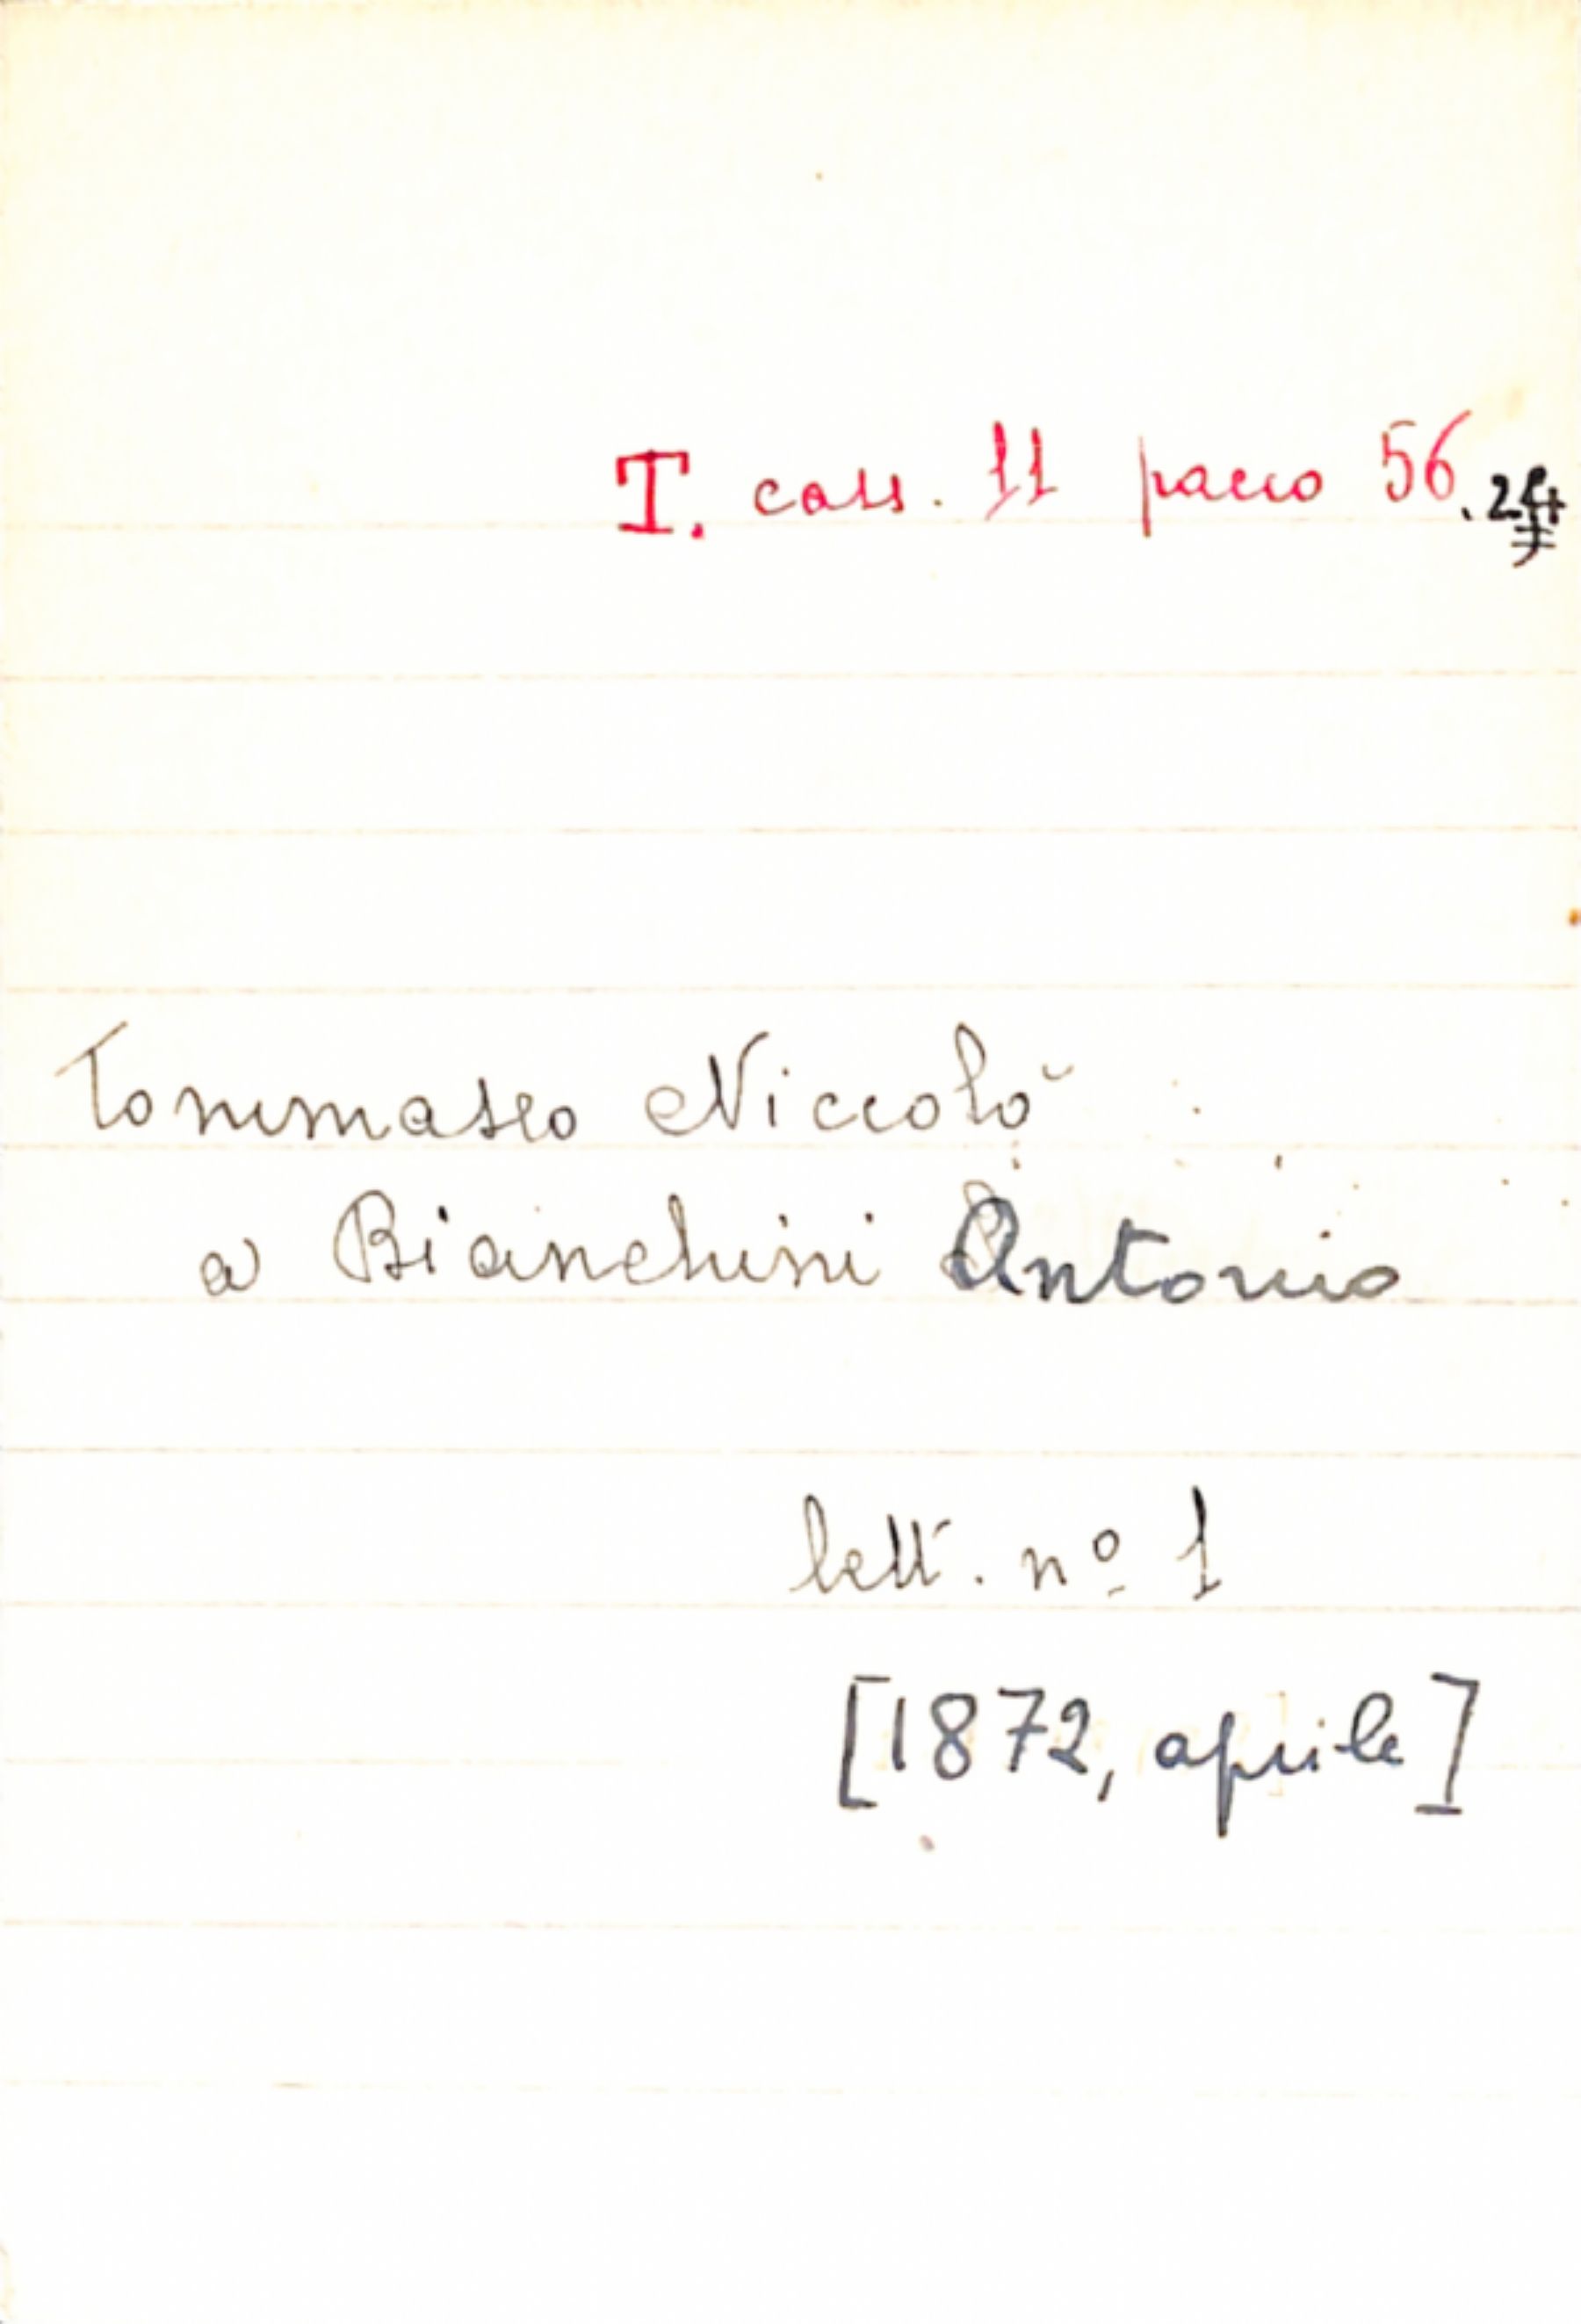 T. cass. 11 pacco 56.
Tommaseo Niccolò
a Bianchini Antonio
lett. nº 1
[1872, aprile]